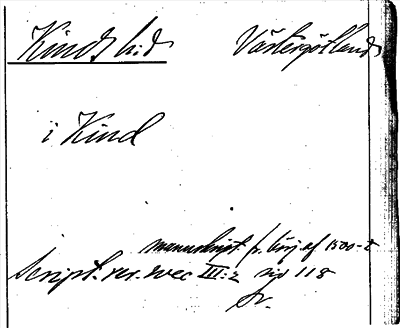 Kinds h:d Västergötland
i Kind
manuskript fr. börj. af 1500-t
Script. rer. svec III:2 sid 118